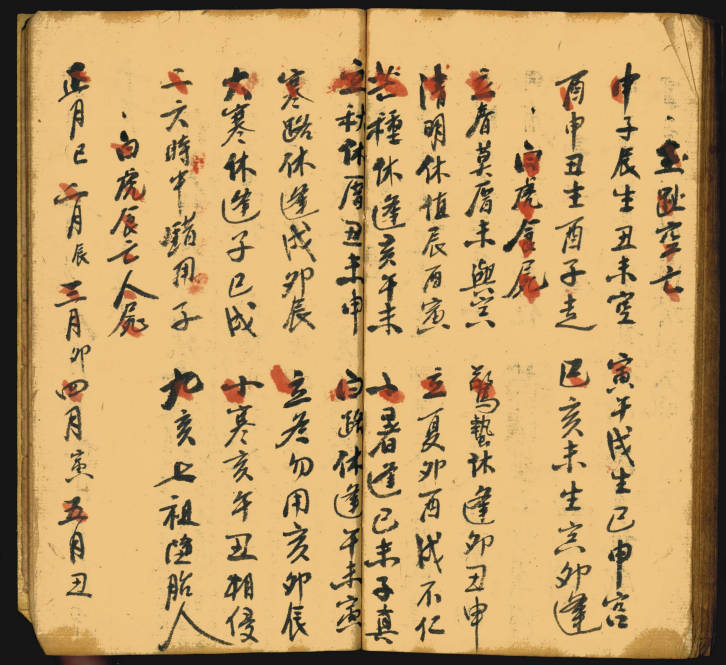 墓趾空亡
申子辰生丑未空 寅午戌生巳申宫
酉申丑生酉子走 巳亥未生寅卯逢
白虎食屍
立春莫厝未與 驚蟄休逢卯丑申
清明休值辰酉寅 立夏卯酉戌不仁
芒種休逢亥午未 小暑逢巳未子真
立秋休厝丑未申 白路休逢午未寅
寒路休逢戌卯辰 立冬勿用亥卯辰
大寒休逢子巳戌 小寒亥午丑相侵
二六時中錯用子 九亥七祖墮胎人
白虎辰亡人屍
正月巳 二月辰 三月卯 四月寅 五月丑